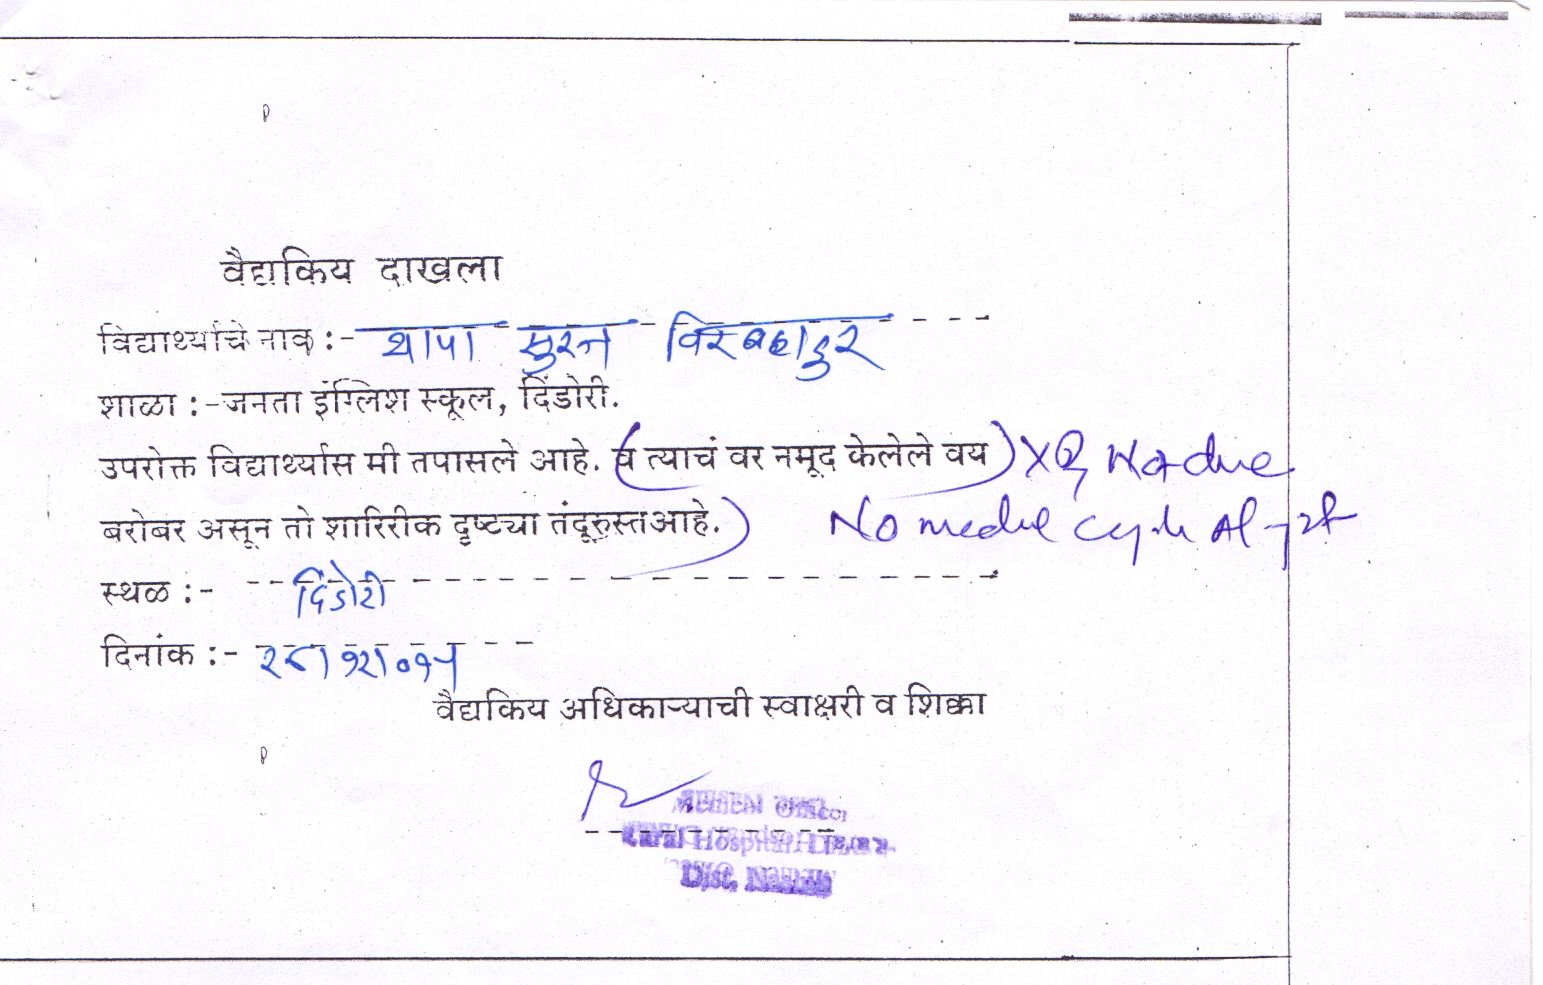 वैद्यकिय दाखला
विद्यार्थ्याचे नाव :- थापा सुरज विरबहादुर
शाळा :- जनता इंग्लिश स्कूल, दिंडोरी.
उपरोक्त विद्यार्थ्यास मी तपासले आहे. (व त्याचं वर नमूद केलेले वय)
बरोबर असून तो शारिरीक दृष्टया तंदूरुस्त आहे.) No
स्थळ :- दिंडोरी
दिनांक :- २८।१२।०१५
वैद्यकिय अधिकाऱ्याची स्वाक्षरी व शिक्का
Officer
Rural Hospital
Dist. Nashik